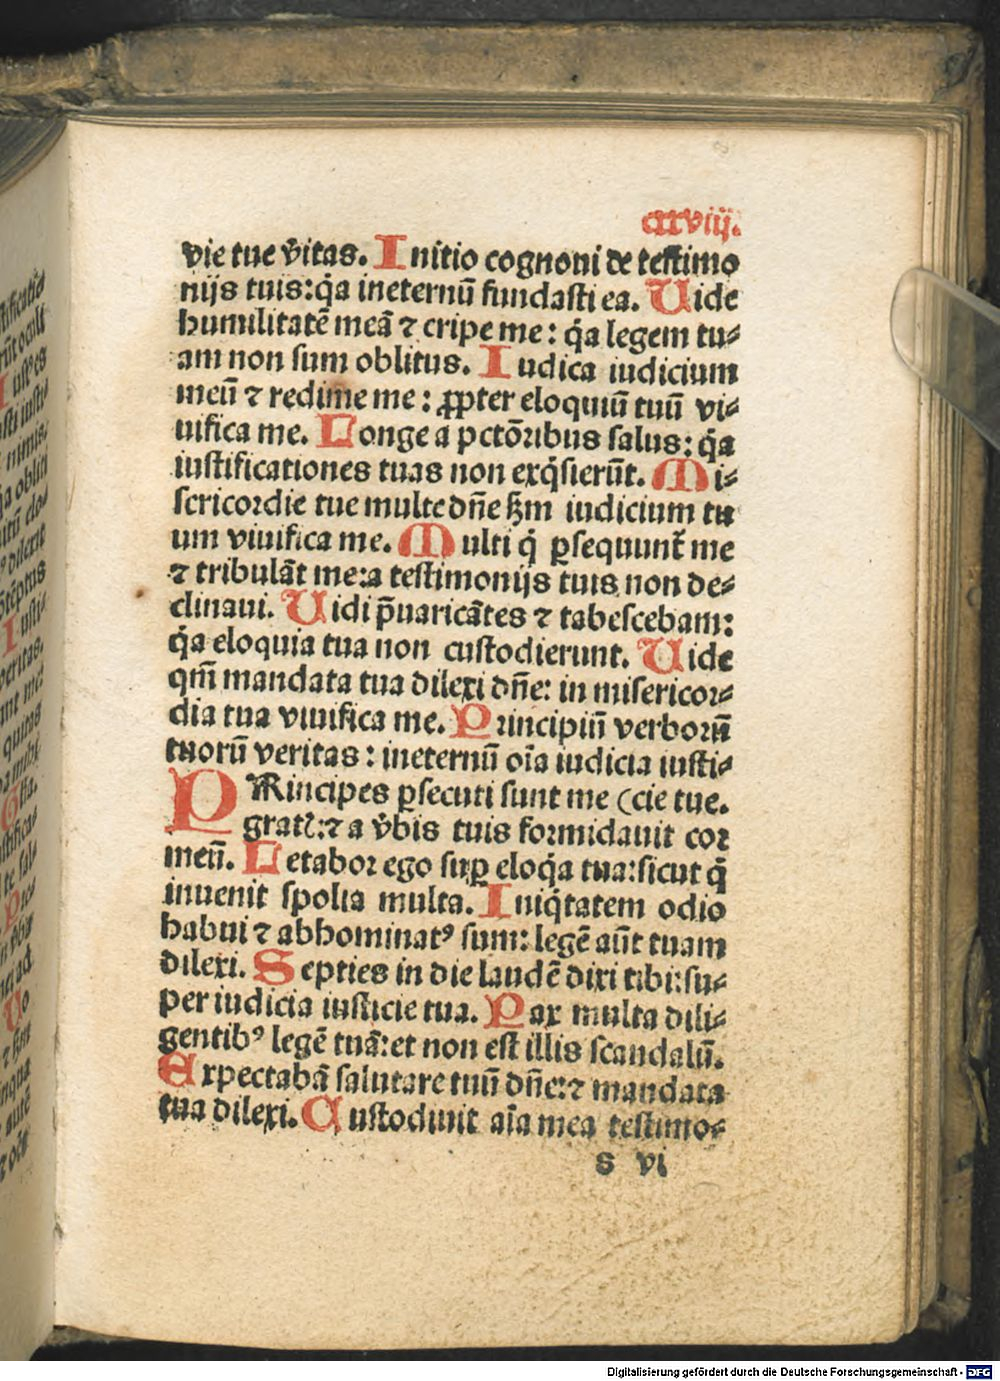 cxviij.
vie tue v̄itas. Initio cognoni de testimo
nijs tuis:q̄a ineternū fundasti ea. Uide
humilitatē meā ⁊ cripe me: q̄a legem tu⸗
am non sum oblitus. Iudica iudicium
meū ⁊ redime me: ꝓpter eloquiū tuū vi⸗
uifica me. Longe a pctōribus salus: q̄a
iustificationes tuas non exq̄sierūt. Mi⸗
sericordie tue multe dn̄e ẜm iudicium tu
um viuifica me. Multi q̄ ꝑsequunt̄ me
⁊ tribulāt me:a testimonijs tuis non de⸗
clinaui. Uidi p̄uaricātes ⁊ tabescebam:
q̄a eloquia tua non custodierunt. Uide
qm̄ mandata tua dilexi dn̄e: in misericor⸗
dia tua viuifica me. Principiū verborū
tuorū veritas: ineternū oīa iudicia iusti⸗
PRincipes ꝑsecuti sunt me (cie tue.
grat̄:⁊ a v̄bis tuis formidauit cor
meū. Letabor ego suꝑ eloq̄a tua:sicut q̄
inuenit spolia multa. Iniq̄tatem odio
habui ⁊ abhominatꝰ sum: legē aūt tuam
dilexi. Septies in die laudē dixi tibi:su⸗
per iudicia iusticie tua. Pax multa dili⸗
gentibꝰ legē tuā:et non est illis scandalū.
Expectabā salutare tuū dn̄e:⁊ mandata
tua dilexi. Custodiuit aīa mea testimo⸗
s vi
Digitalisierung gefördert durch die Deutsche Forschungsgemeinschaft - DFG